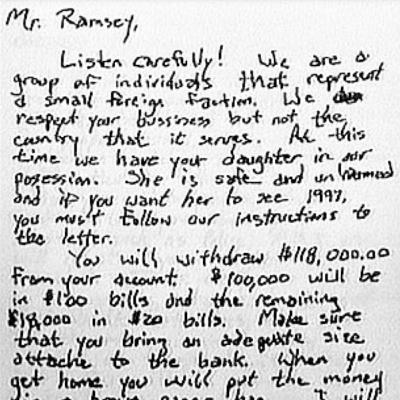 Mr. Ramsey,
Listen carefully! We are a
group of individuals that represent
a small foreign faction. We
respect your bussiness but not the
country that it serves. At this
time we have your daughter in our
posession. She is safe and unharmed
and if you want her to see 1997,
you must follow our instructions to
the letter.
You will withdraw $118,000.00
from your account. $100,000 will be
in $100 bills and the remaining
$18,000 in $20 bills. Make sure
that you bring an adequate size
attache to the bank. When you
get home you will put the money
in a brown paper bag. I will